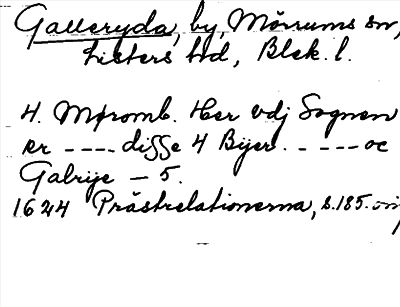 Galleryda, by, Mörrums sn,
Listers hd, Blek. l.
4. Møromb. Her vdj Sognen
er ---- disse 4 Byer. ----- oc
Galrije - 5.
1624 Prästrelationerna, s. 185.